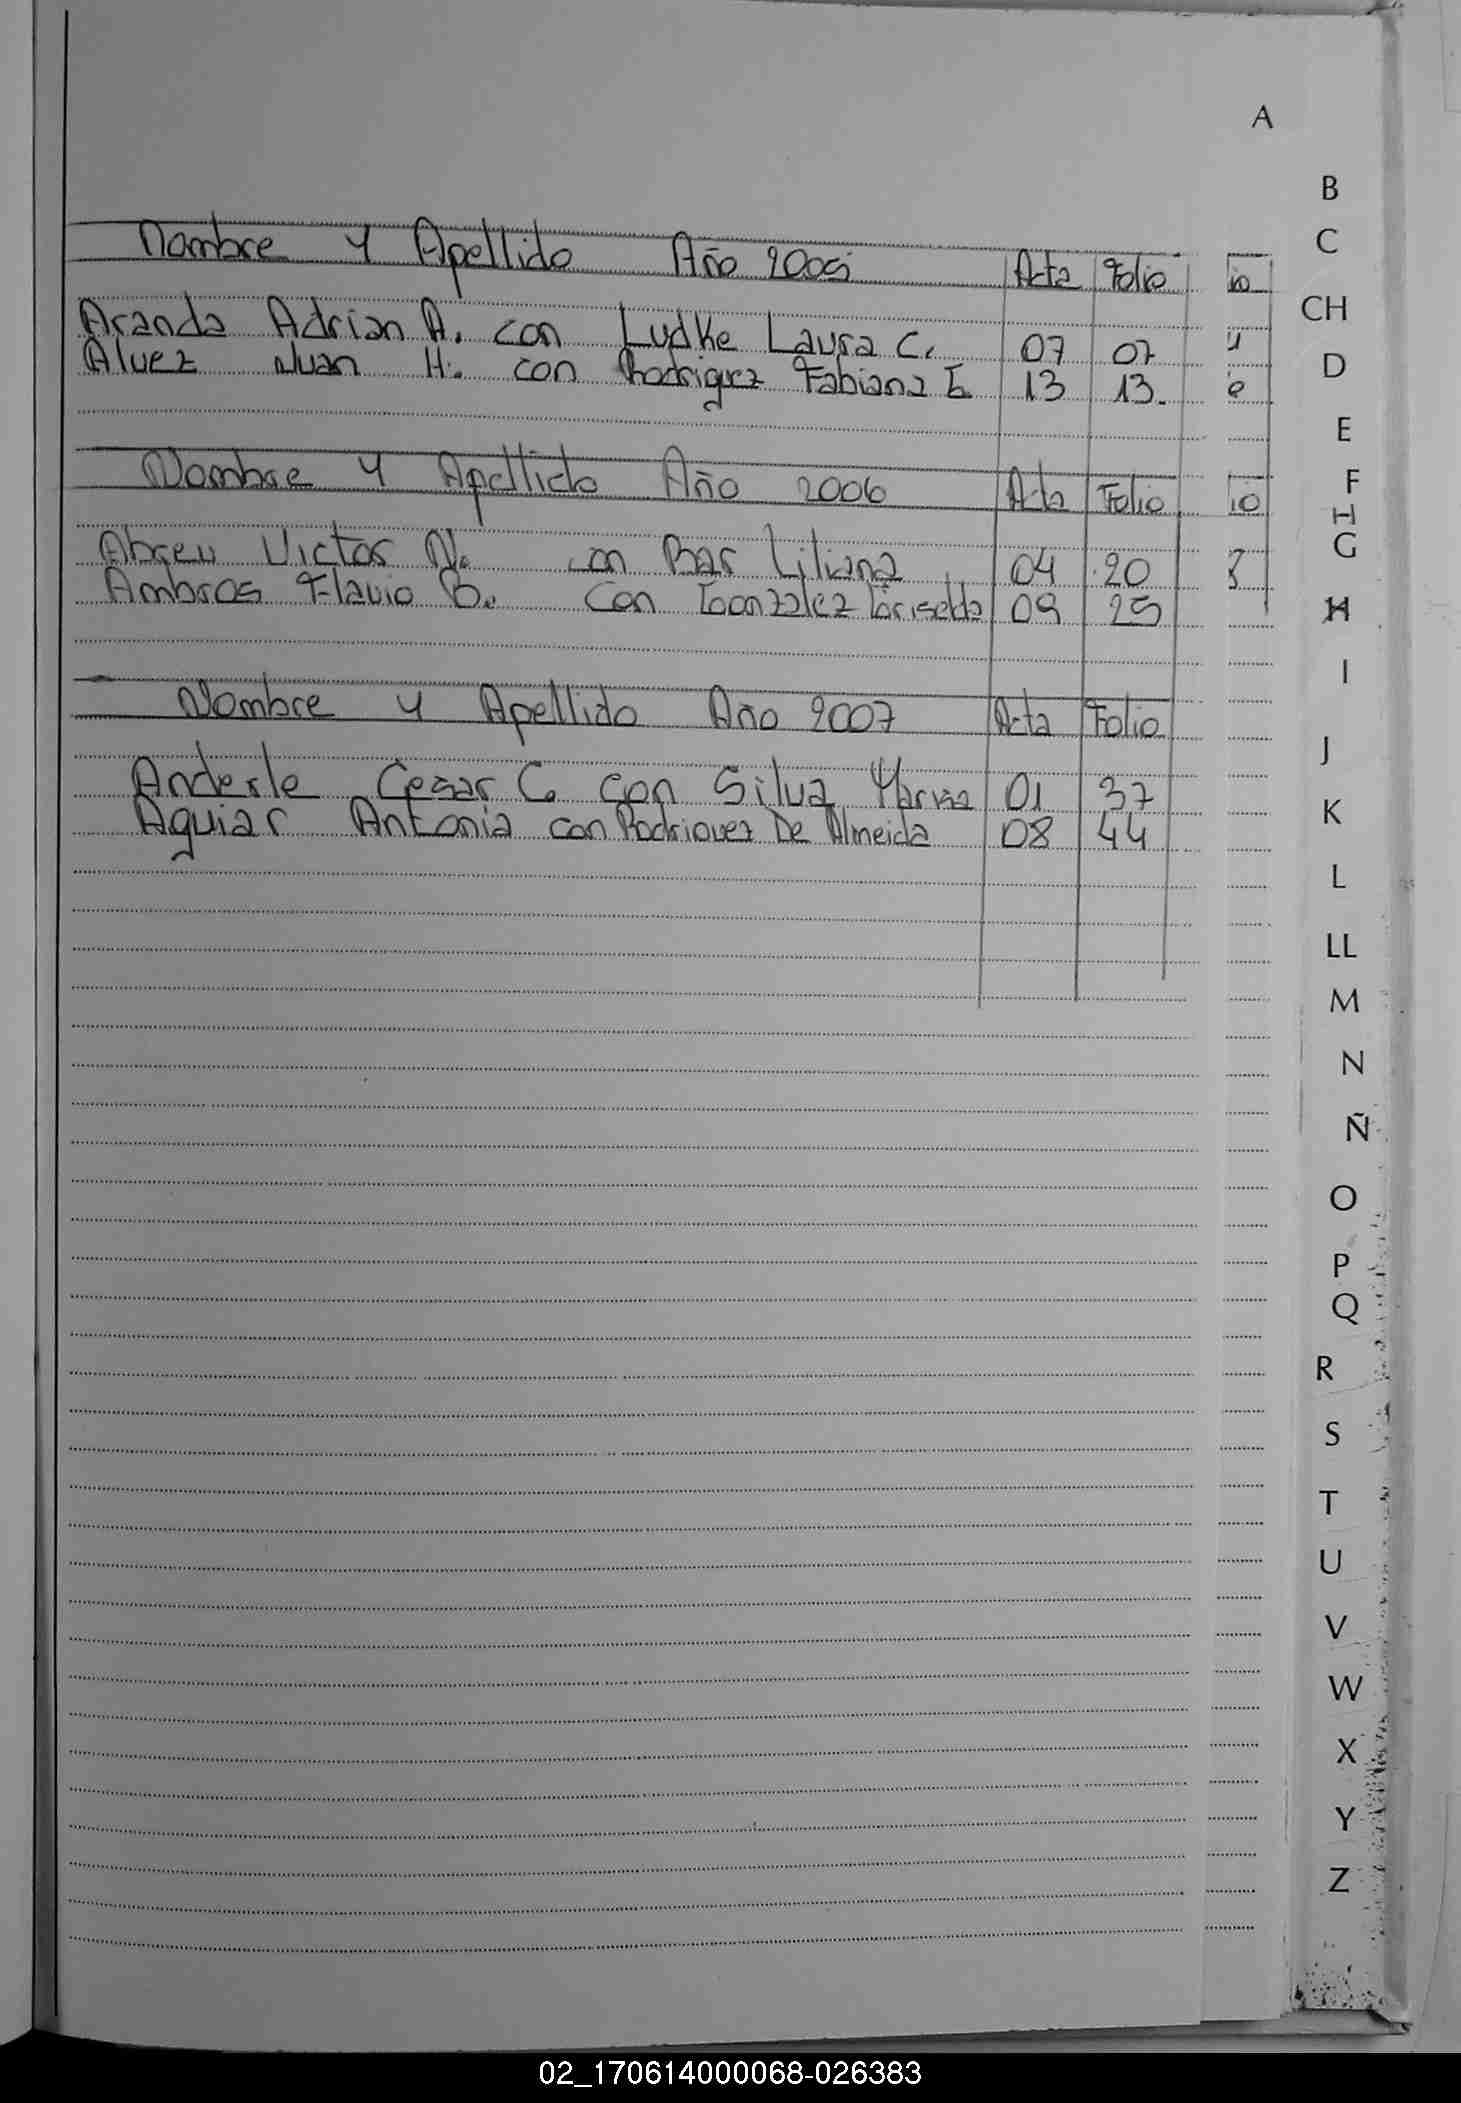 A
B
C
CH
D
E
F
H
G
H
I
J
K
L
LL
M
N
Ñ
O
P
Q
R
S
T
U
V
W
X
Y
Z
Nombre y Apellido Año 2005 Acta Folio io
Aranda Adrian A. con Ludke Laura C. 07 07
Alvez Juan H. con Rodriguez Fabiana E. 13 13.
Nombre y Apellido Año 2006 Acta Folio io
Abreu Victor N. con Bar Liliana 04 20
Ambros Flavio D. con Gonzalez Griselda 09 25
Nombre y Apellido Año 2007 Acta Folio
Anderle Cesar C. con Silva 01 37
Aguiar Antonia con Rodriguez De Almeida 08 44
02_170614000068-026383